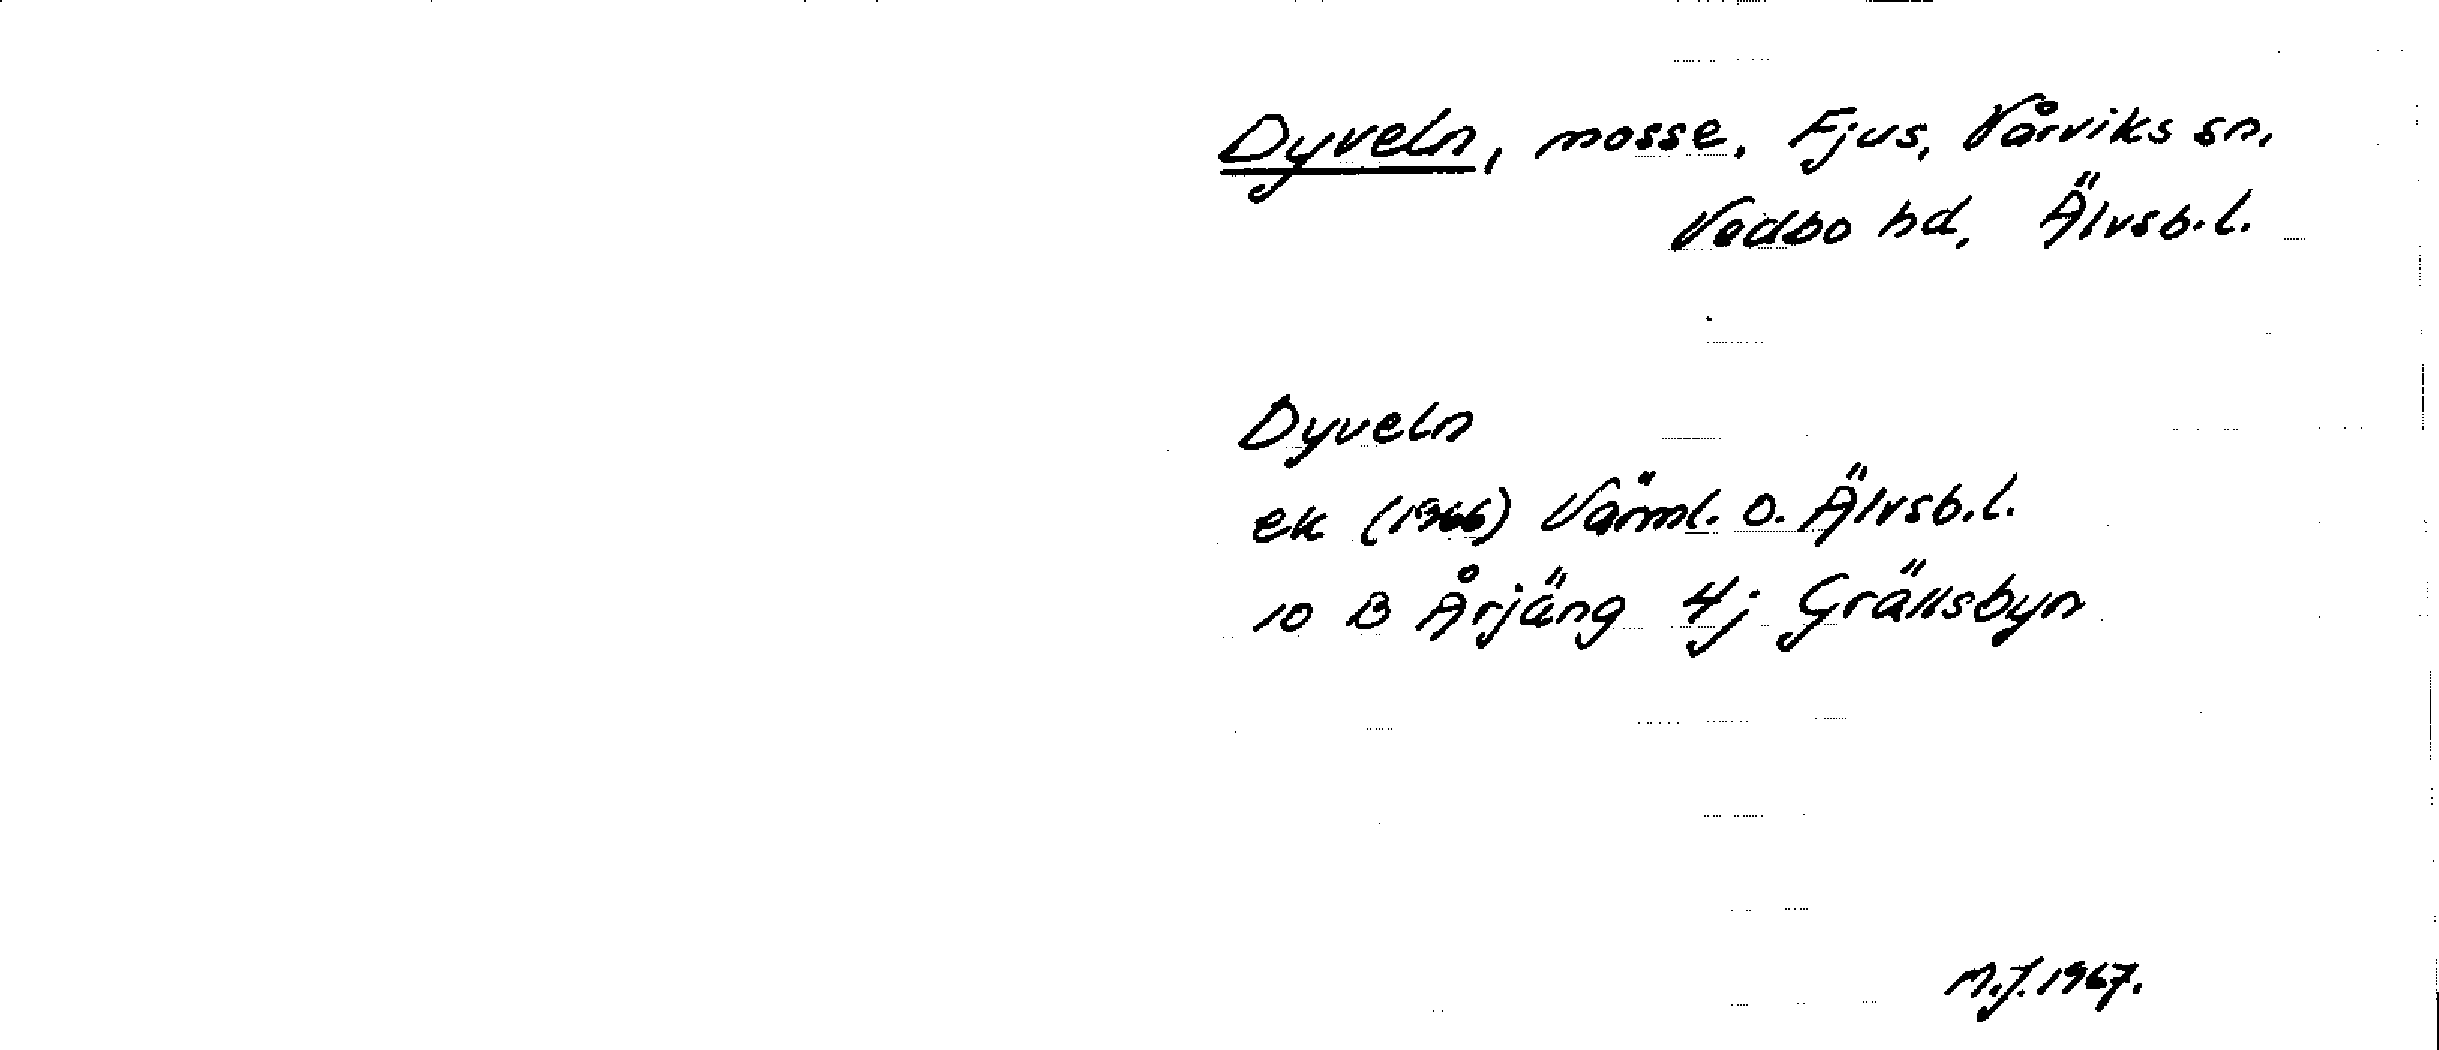 Dyveln, mosse, Fjus, Vårviks sn,
Vedbo hd, Älvsb.l.
Dyveln
ek (1966) Värml. o. Älvsb.l.
10 B Årjäng 4j Grällsbyn
M.J. 1967.